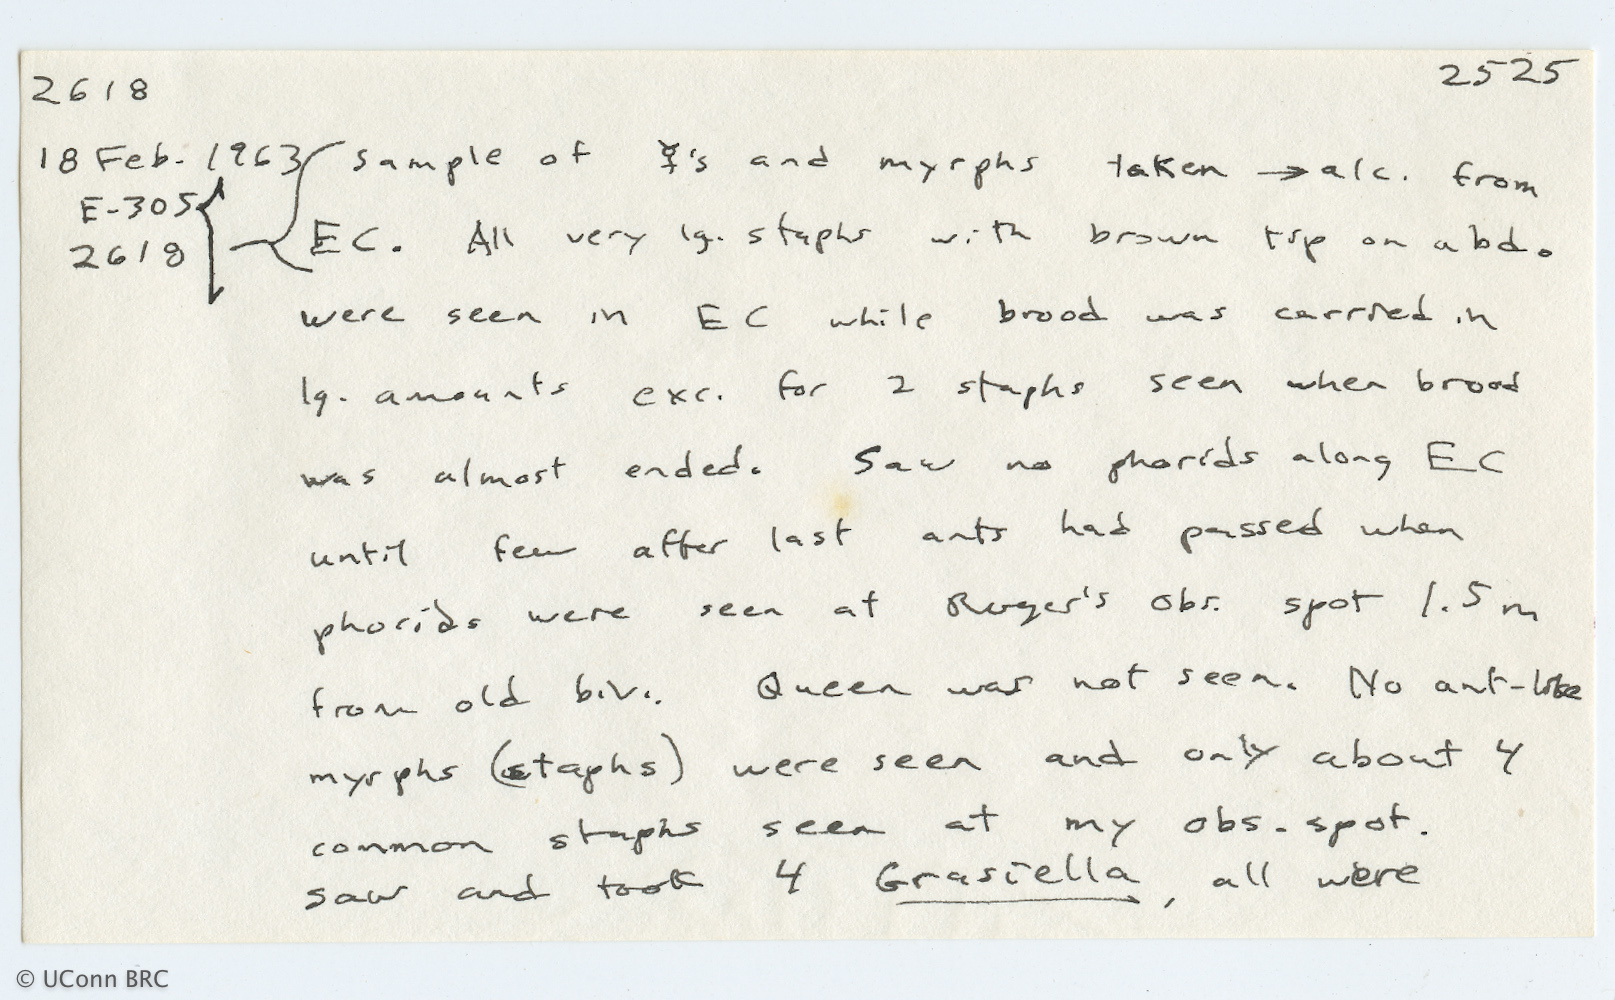 2618 2525
18 Feb. 1963 Sample of ☿'s and myrphs taken → alc. from
E-305
2618 EC. All very lg. staphs with brown tip on abd.
were seen in EC while brood was carried in
lg. amounts exc. for 2 staphs seen when brood
was almost ended. Saw no phorids along EC
until few after last ants had passed when
phorids were seen at Ruger's obs. spot 1.5 m
from old biv. Queen was not seen. No ant-like
myrphs (staphs) were seen and only about 4
common staphs seen at my obs. spot.
saw and took 4 Grasiella, all were
© UConn BRC